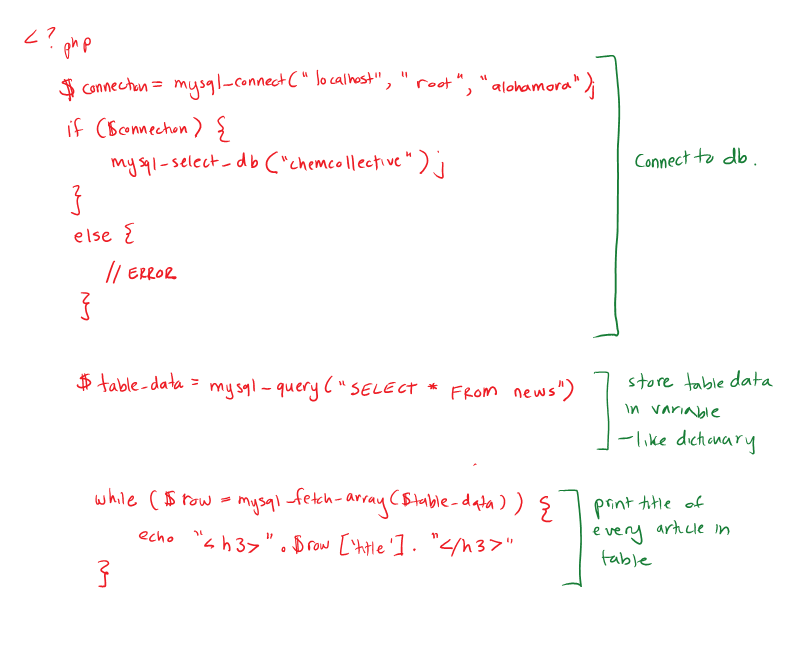 <?php
$connection = mysql_connect("localhost", "root", "alohamora");
if ($connection) {
mysql_select_db("chemcollective");
}
else {
// ERROR
}
connect to db.
$table_data = mysql_query("SELECT * FROM news")
store table data
in variable
-like dictionary
while ($row = mysql_fetch_array($table_data)) {
echo "<h3>".$row['title']."</h3>"
}
print title of
every article in
table